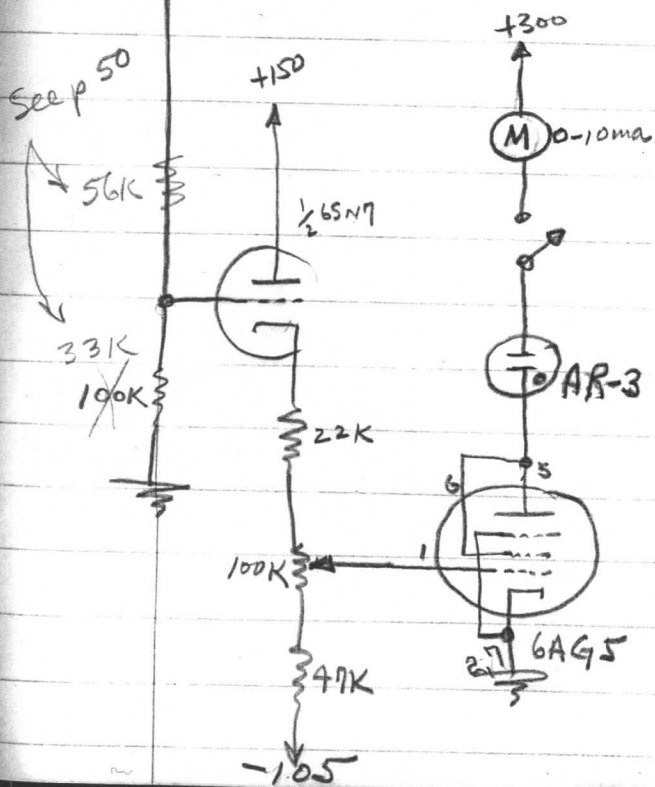 See p 50
56K
33K
100K
+150
½ 6SN7
22K
100K
47K
-105
+300
M 0-10ma
AR-3
5
6
1
2,7
6AG5